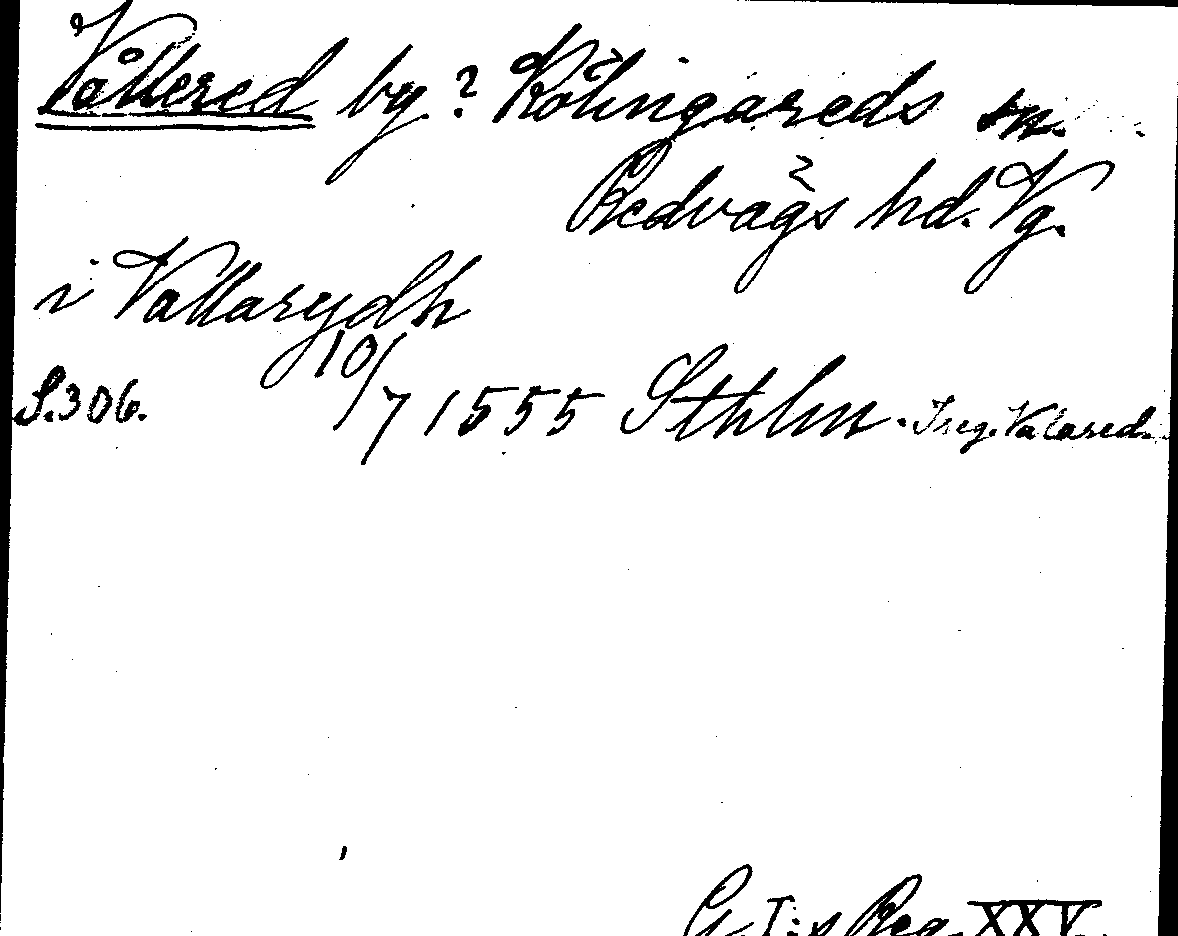 Vållered by? Kölingareds sn.
Redvägs hd. Vg.
i Vallarydh
S.306. 10/7 1555 Sthlm. Ireg. Valared.
G. I:s Reg. XXV.